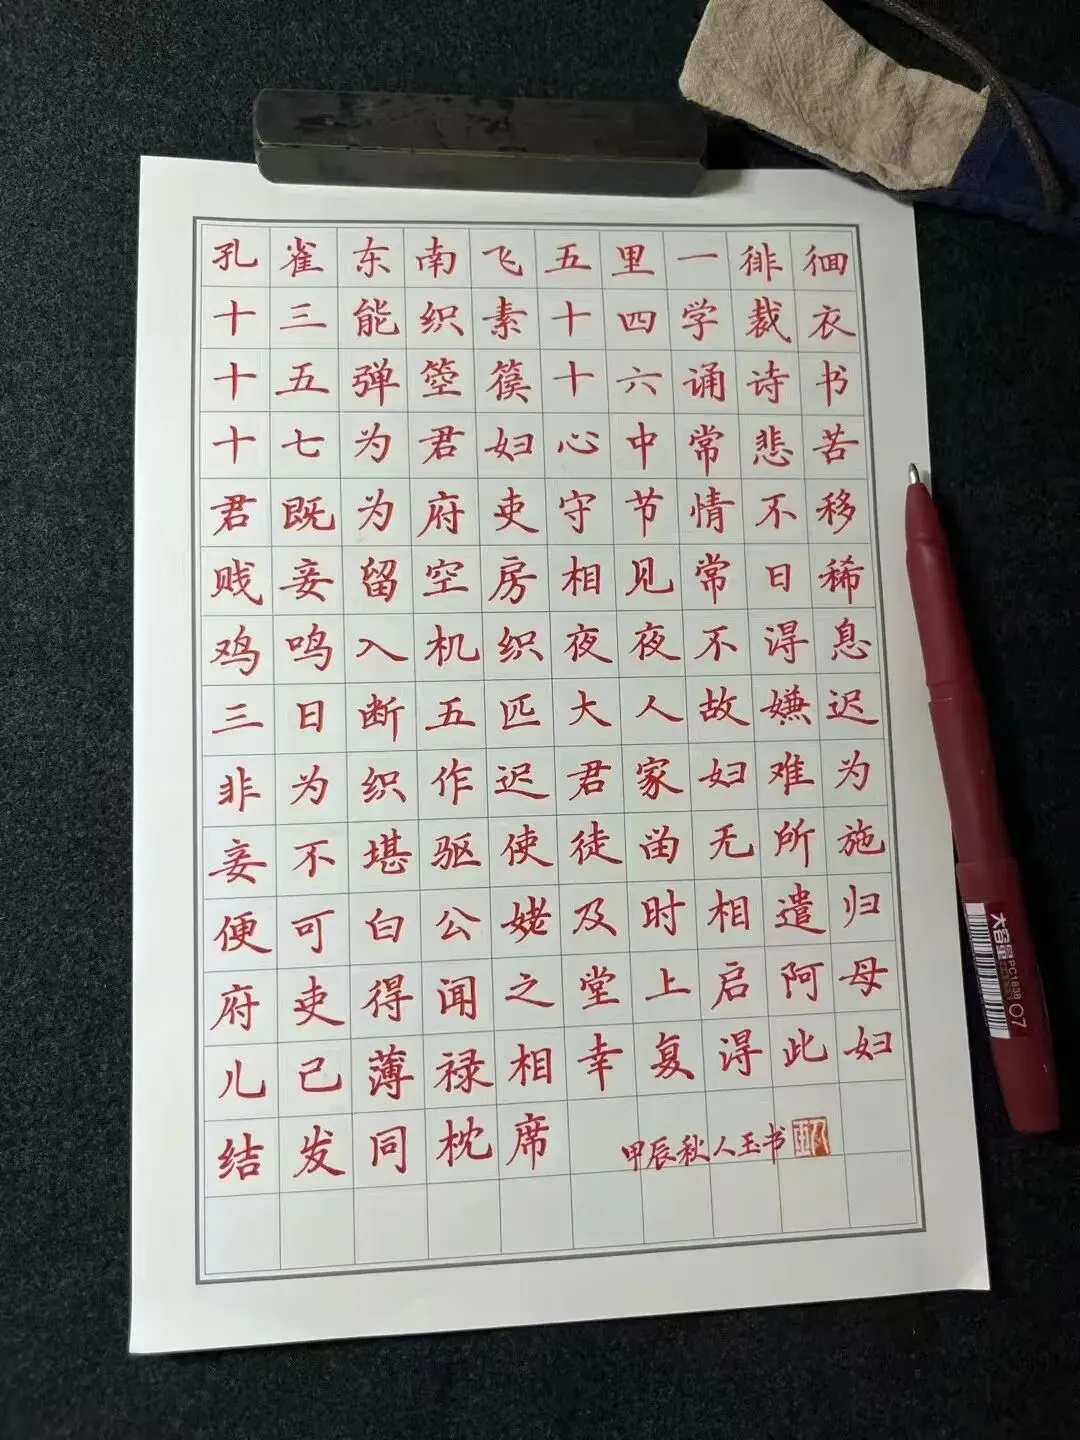 孔雀东南飞五里一徘徊
十三能织素十四学裁衣
十五弹箜篌十六诵诗书
十七为君妇心中常悲苦
君既为府吏守节情不移
贱妾留空房相见常日稀
鸡鸣入机织夜夜不得息
三日断五匹大人故嫌迟
非为织作迟君家妇难为
妾不堪驱使徒留无所施
便可白公姥及时相遣归
府吏得闻之堂上启阿母
儿已薄禄相幸复得此妇
结发同枕席
甲辰秋人玉书
大容量
PC1838 07